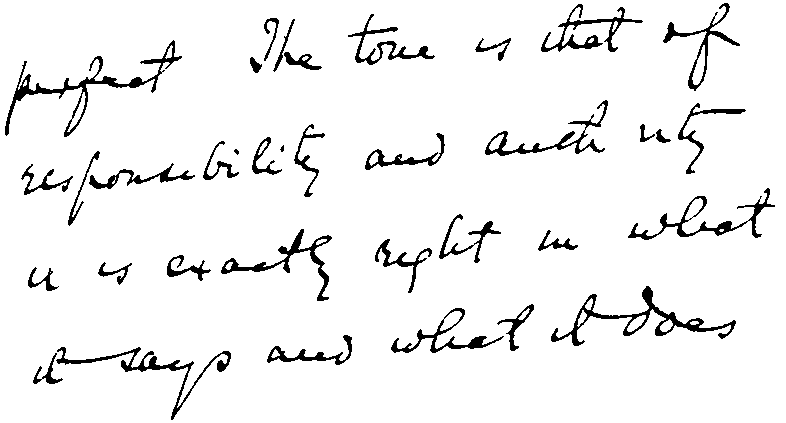 perfect The tone is that of
responsibility and authority
it is exactly right in what
it says and what it does